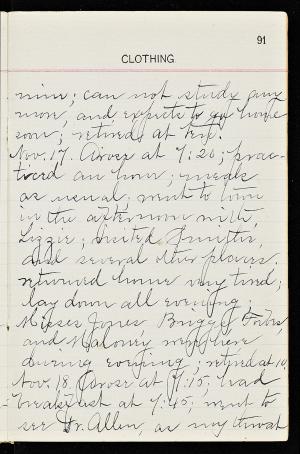 91
CLOTHING.
nine; can not study any
more, and expects to go home
soon; retired at ten.
Nov. 17. Arose at 7:20; prac-
ticed an hour; meals
as usual; went to town
in the afternoon with
Lizzie; visited Smith's,
and several other places.
returned home very tired;
lay down all evening;
Misses Jones, Briggs,
and Maloney were here
during evening; retired at 10.
Nov. 18. Arose at 7:15; had
breakfast at 7:45; went to
see Dr. Allen, as my throat